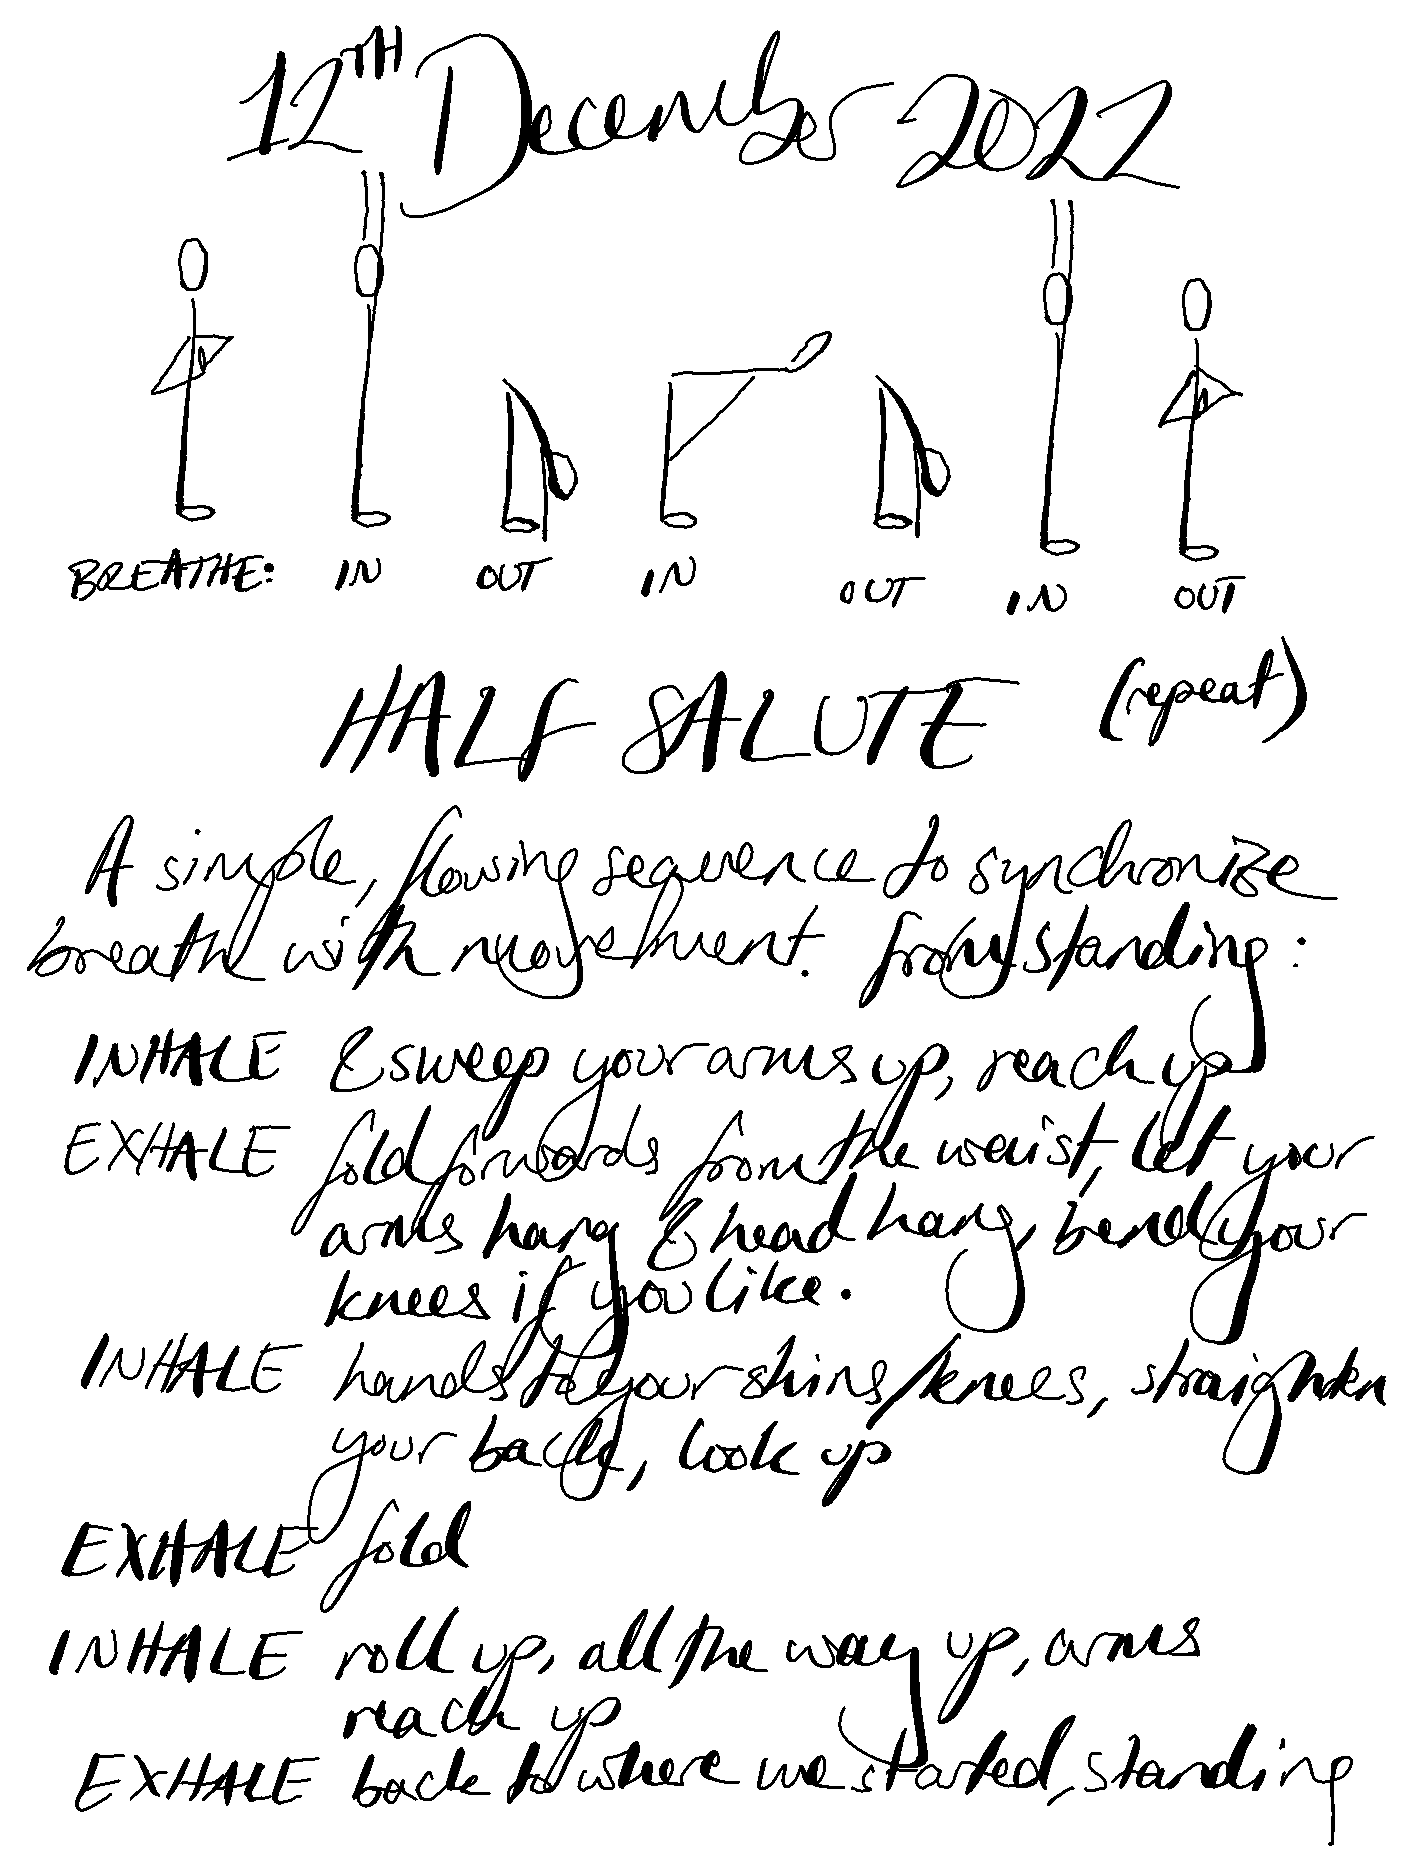 12TH December 2022
BREATHE: IN OUT IN OUT IN OUT
HALF SALUTE (repeat)
A simple, flowing sequence to synchronize
breath with movement. from standing:
INHALE & sweep your arms up, reach up
EXHALE fold forwards from the waist, let your
arms hang & head hang, bend your
knees if you like.
INHALE hands to your shins/knees, straighten
your back, look up
EXHALE fold
INHALE roll up, all the way up, arms
reach up
EXHALE back to where we started, standing